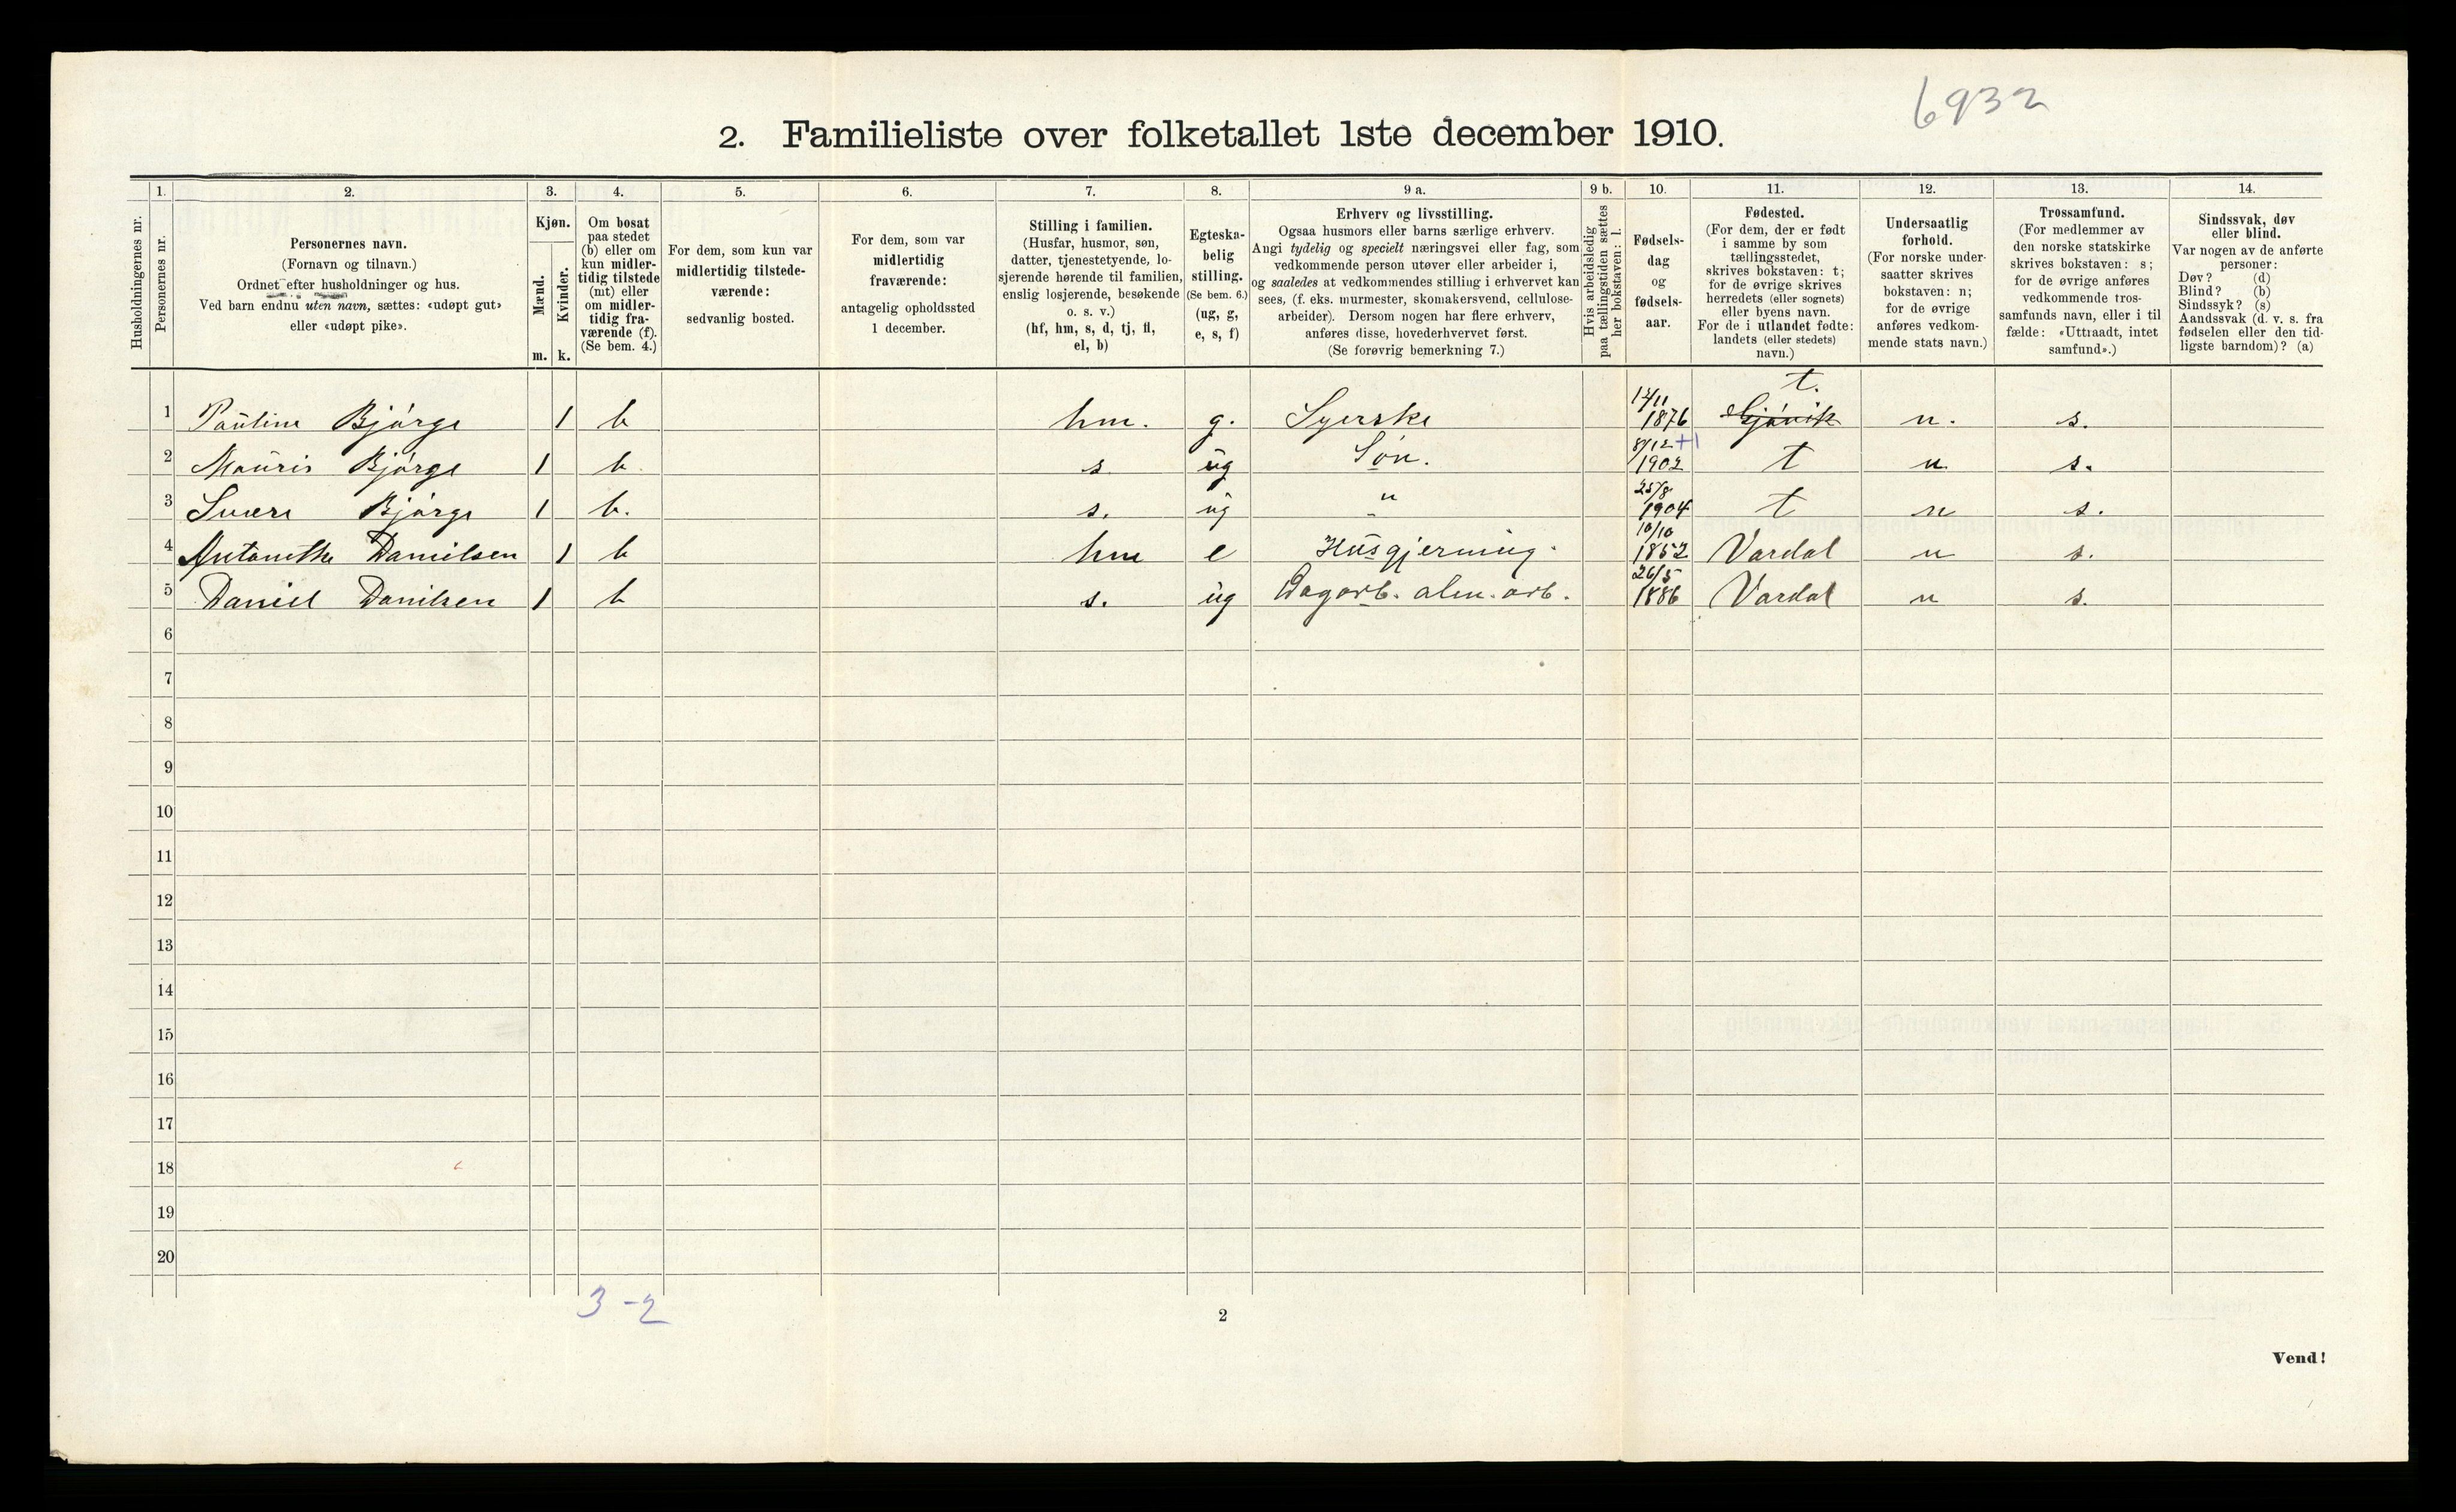 6932
2. Familieliste over folketallet 1ste december 1910.
1. 2. 3. 4. 5. 6. 7. 8. 9 a. 9 b. 10. 11. 12. 13. 14.
Husholdningernes nr.
Personernes nr.
Personernes navn.
(Fornavn og tilnavn.)
Ordnet efter husholdninger og hus.
Ved barn endnu uten navn, sættes: «udøpt gut»
eller «udøpt pike».
Kjøn.
Mænd.
Kvinder.
m. k.
Om bosat
paa stedet
(b) eller om
kun midler-
tidig tilstede
(mt) eller
om midler-
tidig fra-
værende (f).
(Se bem. 4.)
For dem, som kun var
midlertidig tilstede-
værende:
sedvanlig bosted.
For dem, som var
midlertidig
fraværende:
antagelig opholdssted
1 december.
Stilling i familien.
(Husfar, husmor, søn,
datter, tjenestetyende, lo-
sjerende hørende til familien,
enslig losjerende, besøkende
o. s. v.)
(hf, hm, s, d, tj, fl,
el, b)
Egteska-
belig
stilling.
(Se bem. 6.)
(ug, g,
e, s, f)
Erhverv og livsstilling.
Ogsaa husmors eller barns særlige erhverv.
Angi tydelig og specielt næringsvei eller fag, som
vedkommende person utøver eller arbeider i,
og saaledes at vedkommendes stilling i erhvervet kan
sees, (f. eks. murmester, skomakersvend, cellulose-
arbeider). Dersom nogen har flere erhverv,
anføres disse, hovederhvervet først.
(Se forøvrig bemerkning 7.)
Hvis arbeidsledig
paa tællingstiden sættes
her bokstaven: l.
Fødsels-
dag
og
fødsels-
aar.
Fødested.
(For dem, der er født
i samme by som
tællingsstedet,
skrives bokstaven: t;
for de øvrige skrives
herredets (eller sognets)
eller byens navn.
For de i utlandet fødte:
landets (eller stedets)
navn.)
Undersaatlig
forhold.
(For norske under-
saatter skrives
bokstaven: n;
for de øvrige
anføres vedkom-
mende stats navn.)
Trossamfund.
(For medlemmer av
den norske statskirke
skrives bokstaven: s;
for de øvrige anføres
vedkommende tros-
samfunds navn, eller i til
fælde: «Uttraadt, intet
samfund».)
Sindssvak, døv
eller blind.
Var nogen av de anførte
personer:
Døv? (d)
Blind? (b)
Sindssyk? (s)
Aandssvak (d. v. s. fra
fødselen eller den tid-
ligste barndom)? (a)
1 Pauline Bjørge 1 b hm. g. Syerske 1876 Gjøvik t. n. s.
2 Mauris Bjørge 1 b. s ug Søn. 8/12 +1 1902 t n s.
3 Sverre Bjørge 1 b. s. ug " 25/8 1904 t n s.
4 Antonethe Danielsen 1 b hm e Husgjerning. 10/10 1852 Vardal n s.
5 Daniel Danilsen 1 b s. ug Dagarb. alm. arb. 26/5 1886 Vardal n s.
6
7
8
9
10
11
12
13
14
15
16
17
18
19
20
3 - 2
2
Vend!